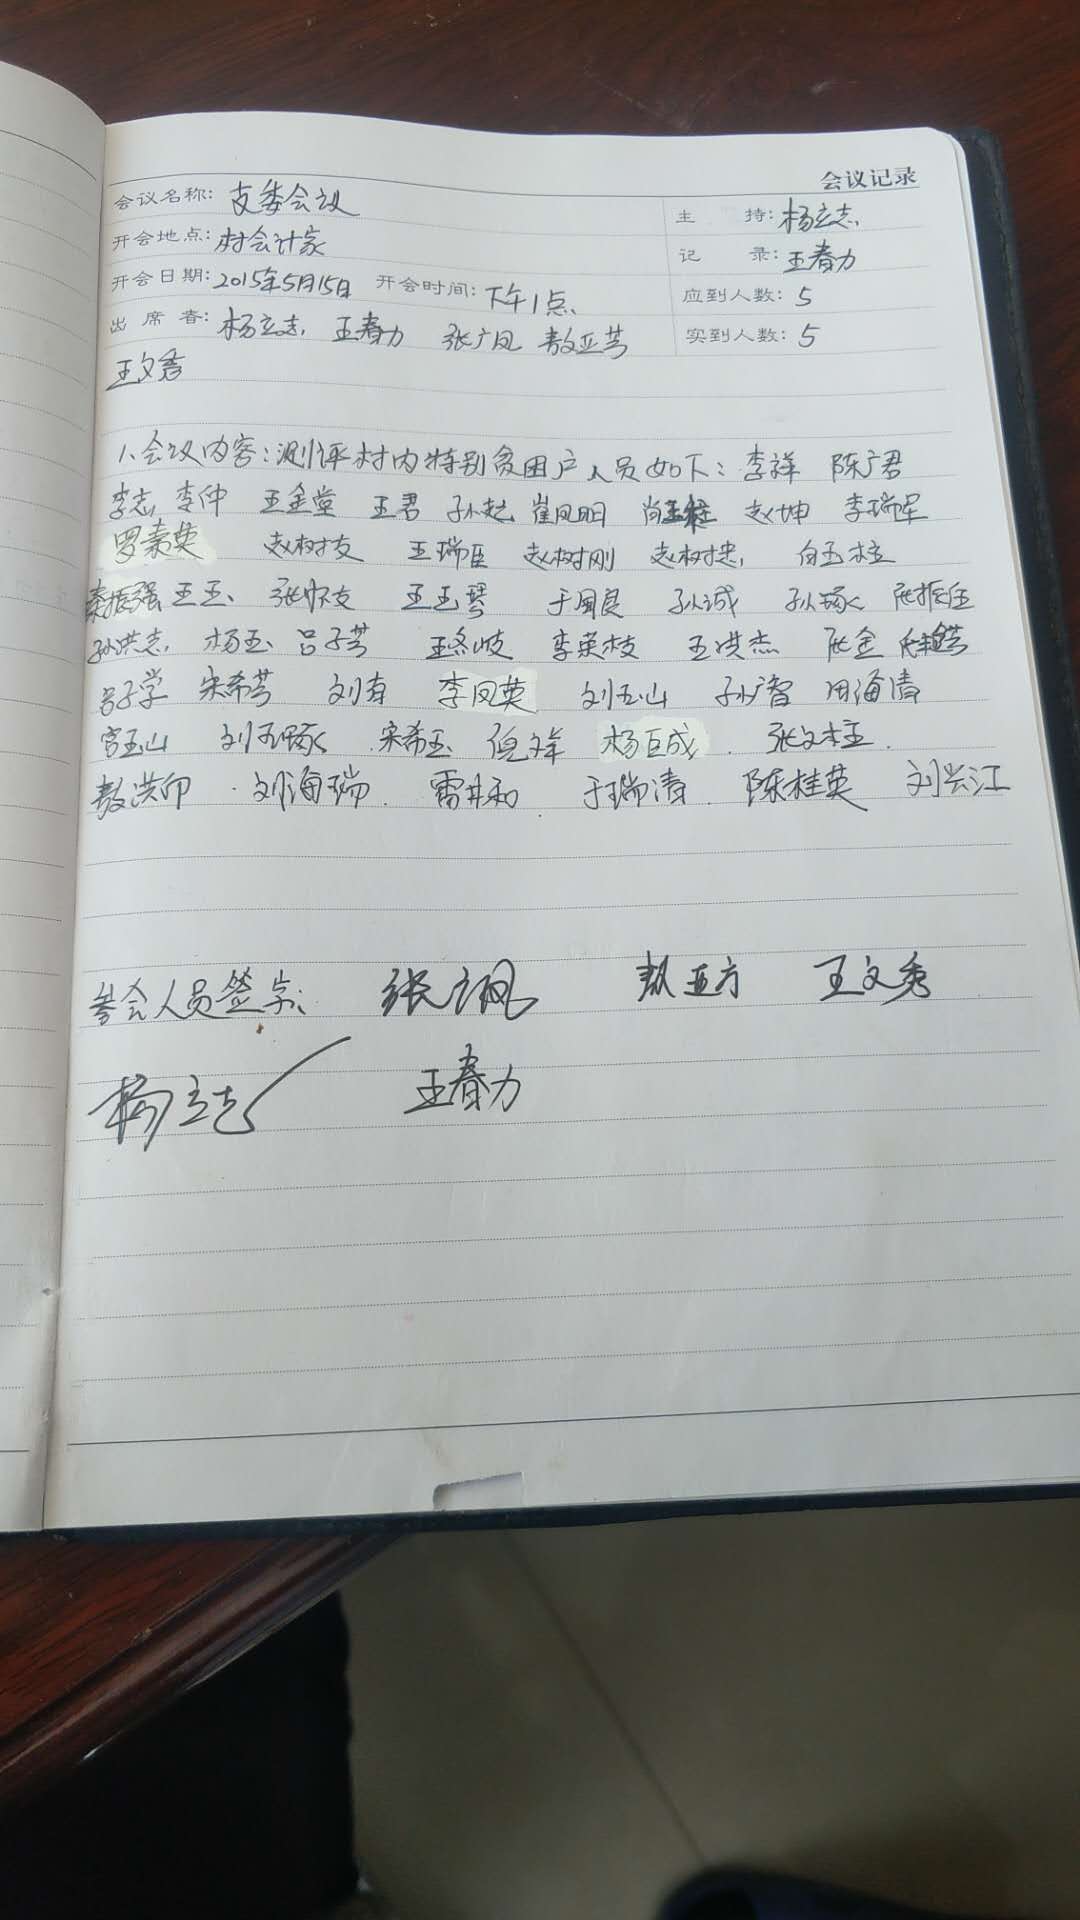 会议记录
会议名称: 支委会议 主 持: 杨立志
开会地点: 村会计家 记 录: 王春力
开会日期: 2015年5月15日 开会时间: 下午1点 应到人数: 5
出席者: 杨立志 王春力 张广凤 敖亚芳 实到人数: 5
王文秀
1.会议内容:测评村内特别贫困户人员如下: 李祥 陈广君
李志 李仲 王金堂 王君 孙起 崔凤明 尚玉柱 赵坤 李瑞军
罗素英 赵树友 王瑞臣 赵树刚 赵树忠 白玉柱
秦振强 王玉 张怀友 王玉琴 于国良 孙诚 孙琢
孙洪志 杨玉 吕子芳 李荣枝 王洪杰
吕子学 宋希芳 刘有 李凤英 刘玉山 孙广智 周海清
宫玉山 刘玉琢 宋希玉 倪文军 杨巨成 张文柱
敖洪印 刘海瑞 雷井和 于瑞清 陈桂英 刘兴江
参会人员签字: 张广凤 敖亚芳 王文秀
杨立志 王春力